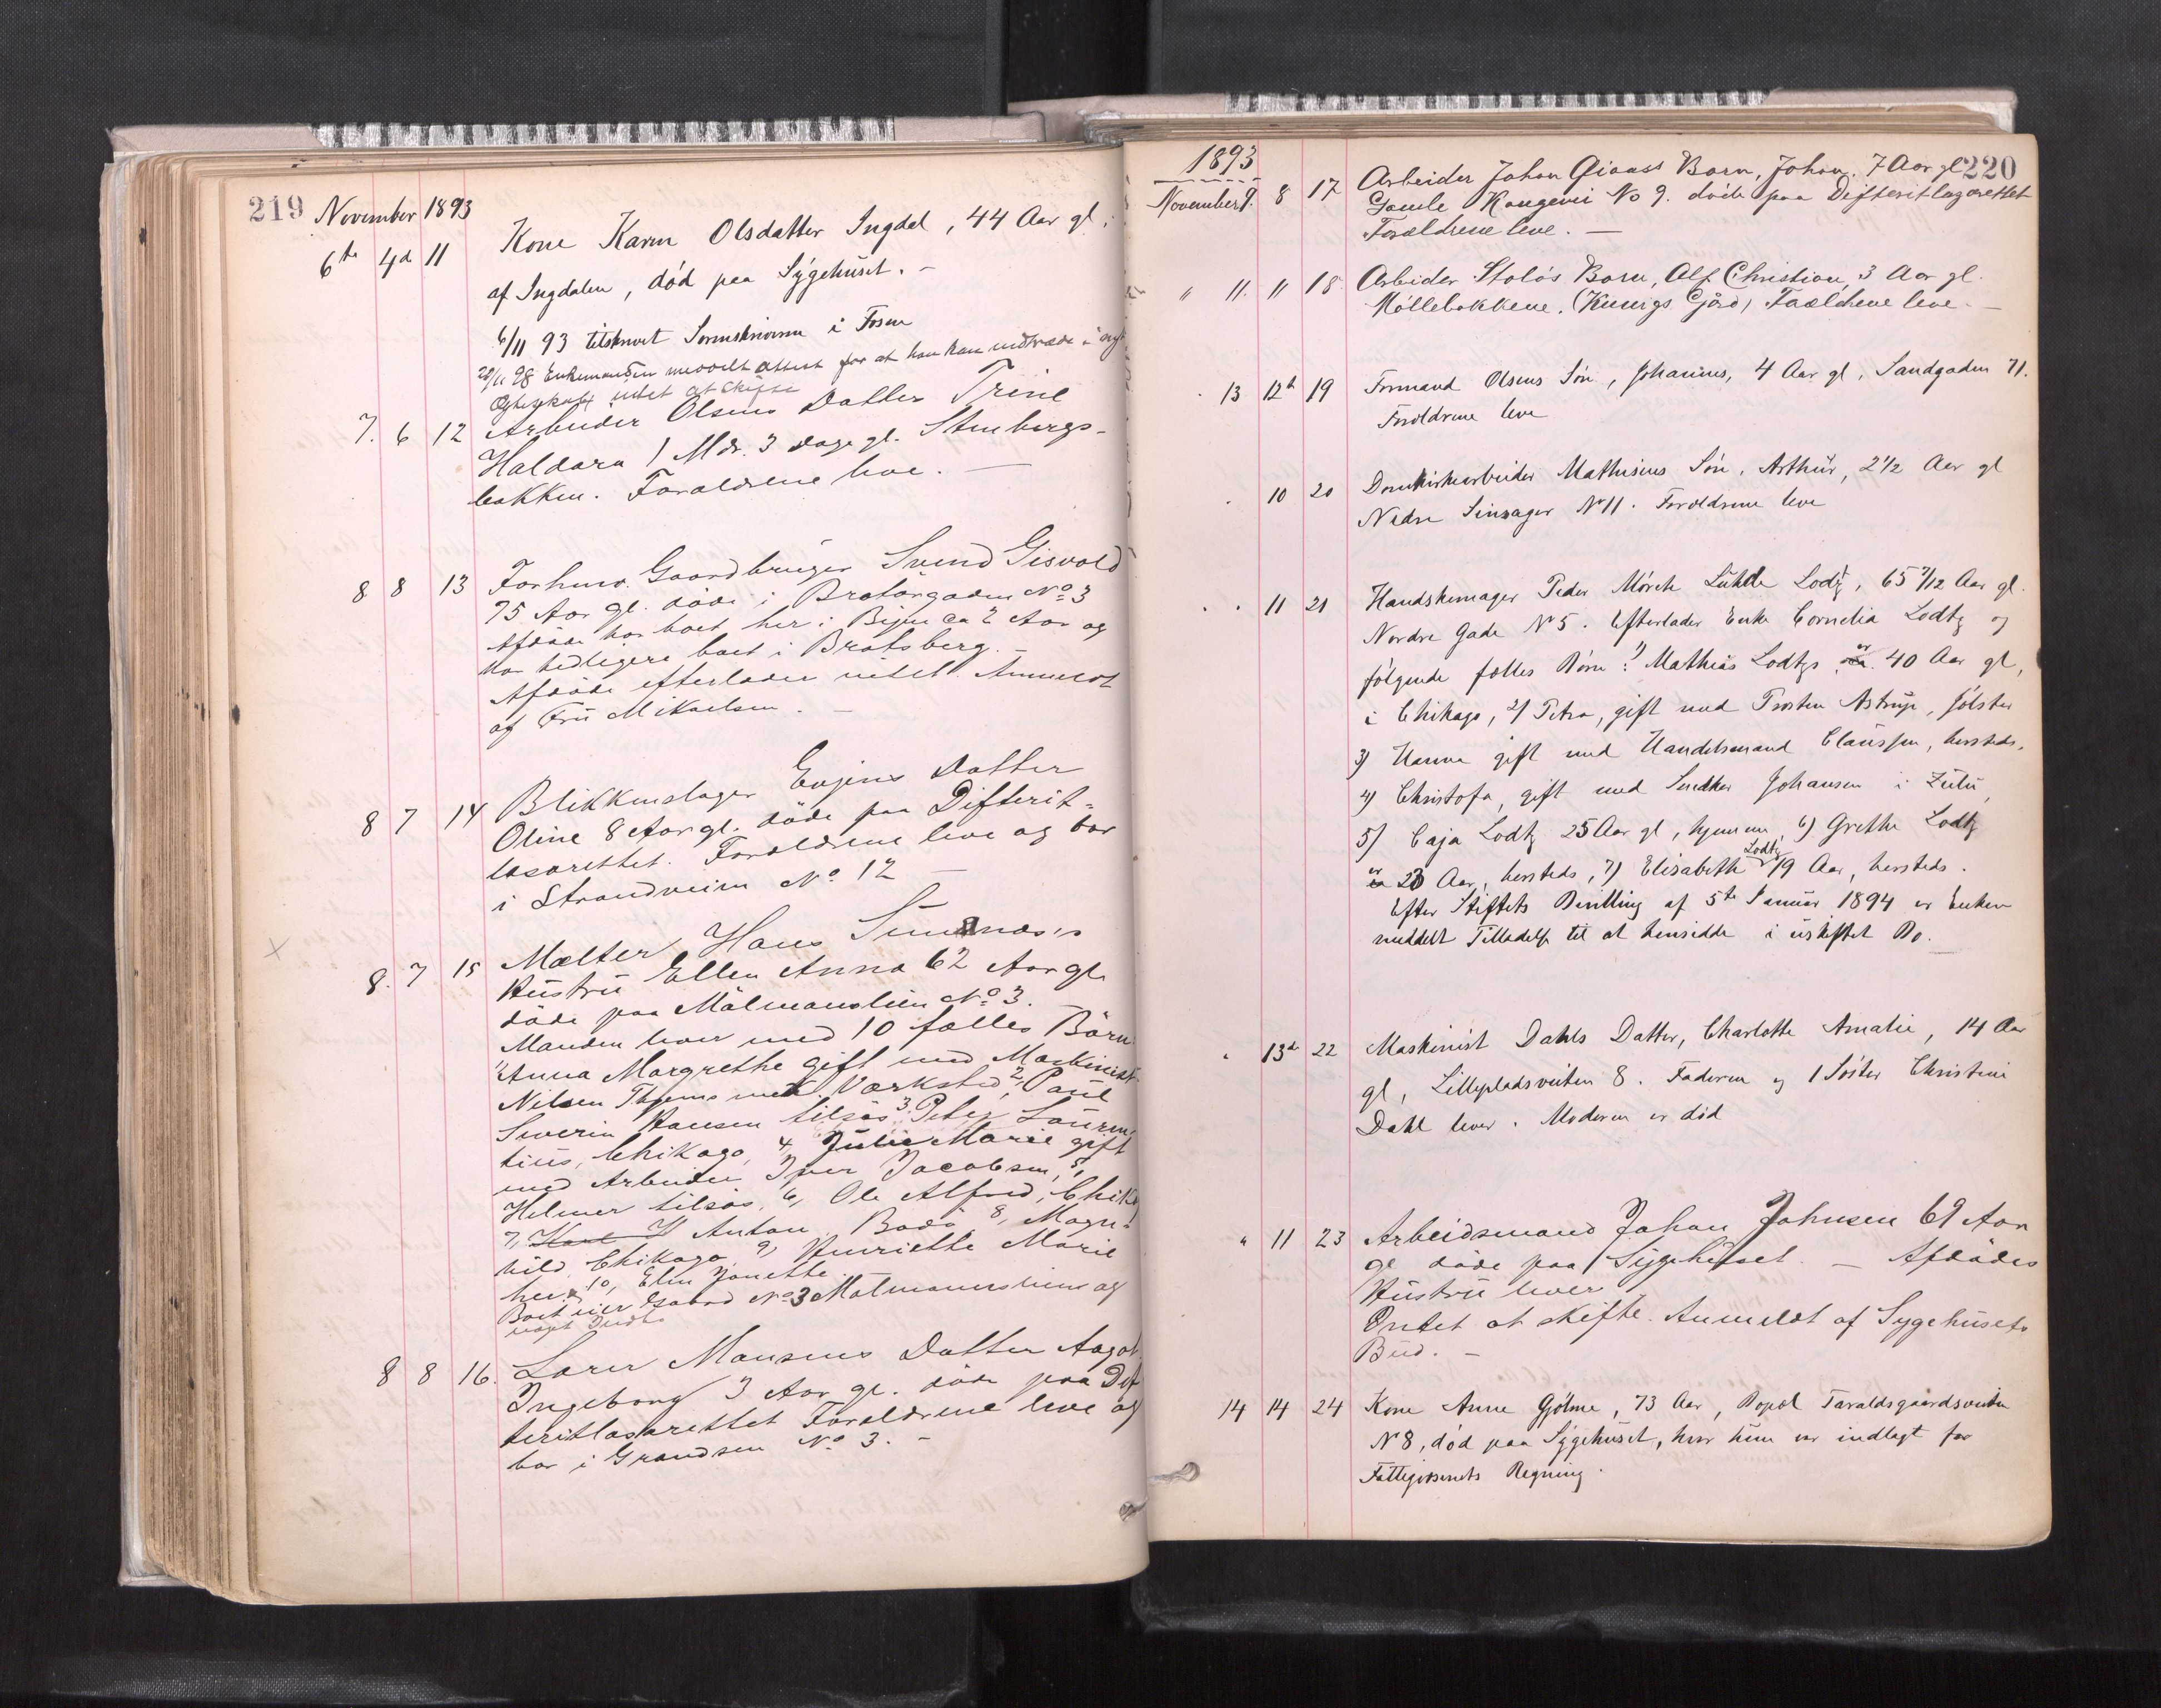 219 November 1893
6te 4d 11 Kone Karen Olsdatter Ingdal, 44 Aar gl.
af Ingdalen, död paa Sygehuset. -
6/11 93 tilskrevet Sorenskriveren i Fosen
28/11 98 Enkemanden meddelt attest for at han kan indtræde i nyt
Ægteskab intet at skifte
7. 6 12 Arbeider Olsens Datter Trine
Haldora 1 Md. 3 Dage gl. Stenbergs-
bakken. Forældrene leve. -
8 8 13 Forhenv. Gaardbruger Svend Gisvold
75 Aar gl. döde i Bratörgaden No 3
Afdöde har boet her i Byen ca 2 Aar og
har tidligere boet i Bratsberg. -
Afdöde efterlader intet. Anmeldt
af Fru Mikaelsen. -
8 7 14 Blikkenslager Evjens Datter
Oline 8 Aar gl. döde paa Difterit-
lasarettet. Forældrene leve og bor
i Strandveien No 12 -
8. 7 15 Mælter Hans
Hustru Ellen Anna 62 Aar gl.
döde paa Målmanslien No 3.
Manden lever med 10 fælles Börn
1, Anna Margrethe gift med Maskinist
Nilsen Thjems mek. Værksted, 2, Paul
Severin Hansen tilsøs 3, Peter Lauren-
tius, Chikago, 4, Julie Marie gift
med Arbeider Iver Jacobsen, 5,
Helmer tilsøs, 6, Ole Alfred, Chik
7, Anton Bodö 8, Magn-
hild Chikago 9, Henriette Marie
her 10, Elin Janette
Boet eier Gaard No 3 Målmanslien og
noget Indbo
8 8 16. Lærer Monsens Datter Aagot
Ingeborg 3 Aar gl. döde paa Dif
teritlasarettet Forældrene leve og
bor i Grandsen No 3. -
1893 220
November 9. 8 17 Arbeider Johan Barn, Johan, 7 Aar gl
Gamle Kongevei No 9. döde paa Difteritlazarettet
Forældrene leve. -
" 11. 11 18. Arbeider Stolös Barn, Alf Christian, 3 Aar gl.
Möllebakkene, (Kunigs Gård) Forældrene leve. -
13 12te 19 Formand Olsens Sön, Johannes, 4 Aar gl, Sandgaden 71.
Forældrene leve
10 20 Domkirkearbeider Mathisens Sön, Arthur, 2 1/2 Aar gl
Nedre Singsager No 11. Forældrene leve
11 21 Handskemager Peder Mörch Lühde Lodtz, 65 7/12 Aar gl.
Nordre Gade No 5. Efterlader Enke Cornelia Lodtz og
følgende fælles Børn: 1) Mathias Lodtz, er 40 Aar gl,
i Chikago, 2) Petra, gift med Presten Astrup, Jölster
3) Hanna gift med Handelsmand Claussen, hersteds,
4) Christofa, gift med Snedker Johansen i Zulu,
5) Caja Lodtz 25 Aar gl, hjemme, 6) Grethe Lodtz
er 23 Aar, hersteds, 7) Elisabeth Lodtz 19 Aar, hersteds.
Efter Stiftets Bevilling af 5te Januar 1894 er Enken
meddelt Tilladelse til at hensidde i uskiftet Bo. -
13de 22 Maskinist Dahls Datter, Charlotte Amalie, 14 Aar
gl, Lillepladsveiten 8. Faderen og 1 Söster Christine
Dahl lever. Moderen er död
" 11 23 Arbeidsmand Johan Johnsen 69 Aar
gl döde paa Sygehuset. - Afdödes
Hustru lever
Intet at skifte. Anmeldt af Sygehusets
Bud. -
14 14 24 Kone Anne Gjölme, 73 Aar, Bopæl Taraldsgaardsveiten
No 8, död paa Sygehuset, hvor hun var indlagt for
Fattigvæsenets Regning.